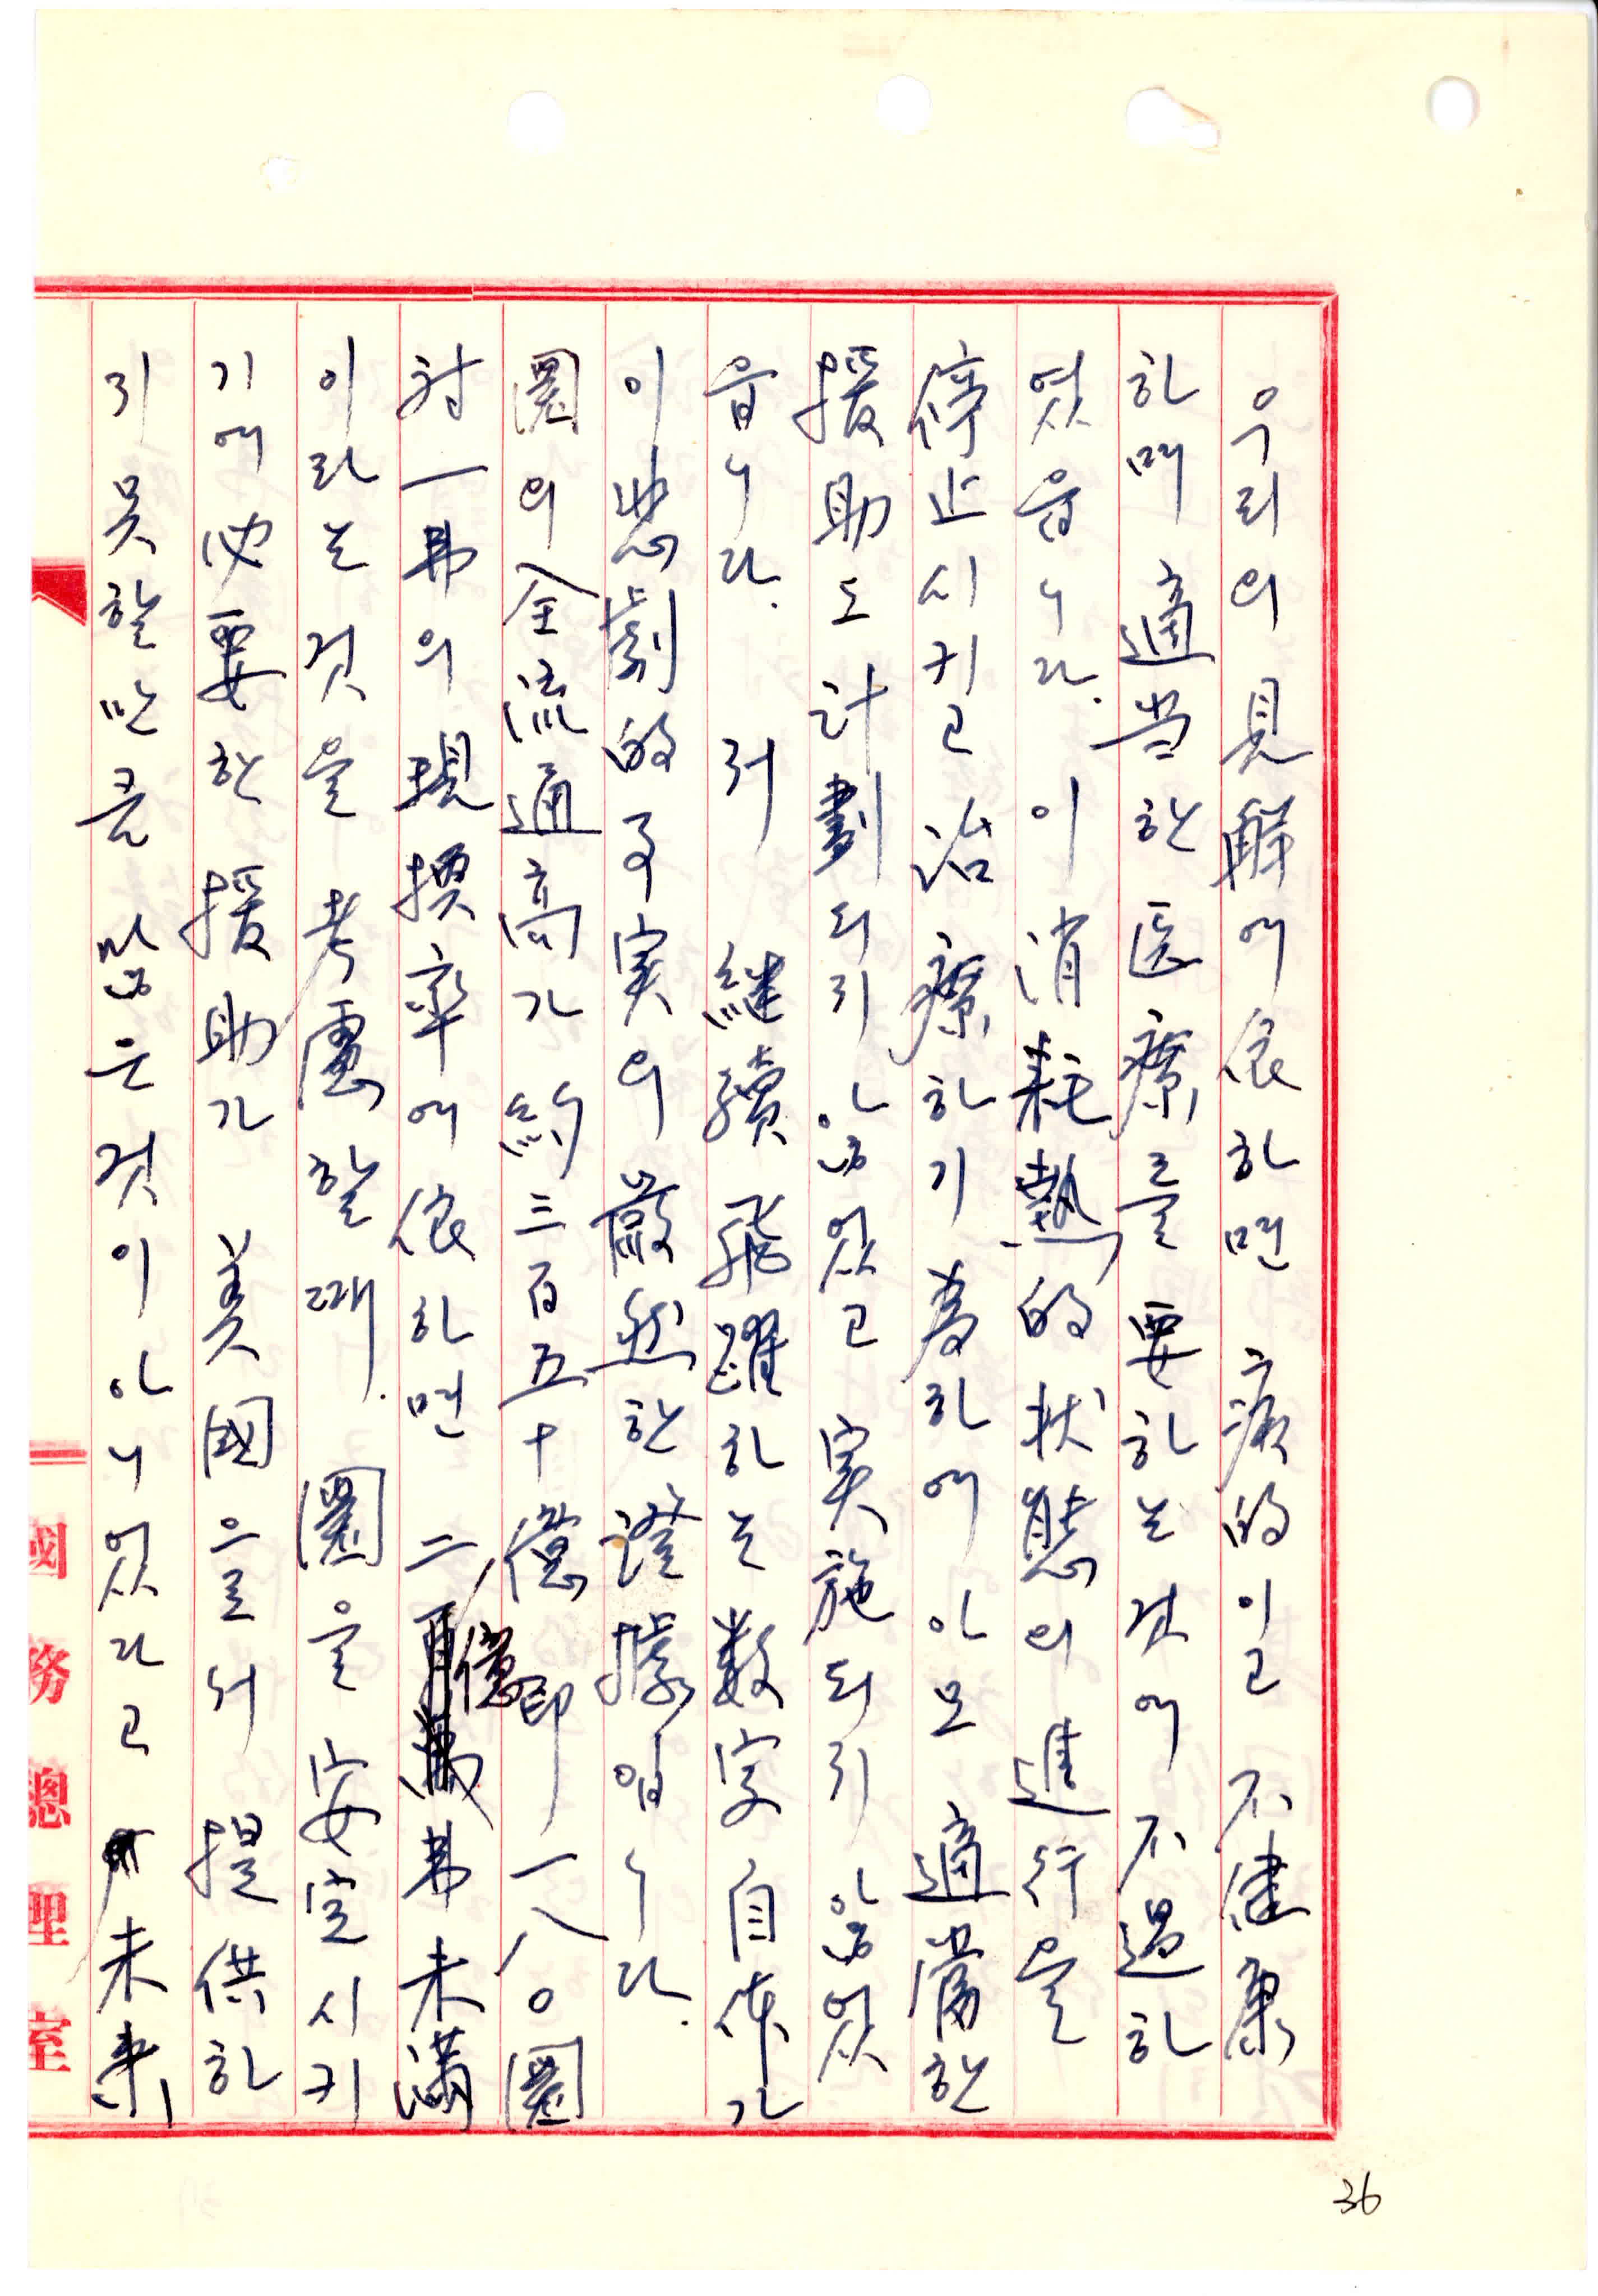 우리의 見解에 依하면 病的이고 不健康
하며 適当한 医療를 要하는 것에 不過하
였읍니다. 이 消耗熱的 狀態의 進行을
停止시키고 治療하기 為하에 아모 適當한
援助도 計劃되지 않었고 実施되지 않었
읍니다. 저 継續 飛躍하는 数字 自体가
이 悲劇的 事実의 嚴然한 證據입니다.
圜의 全流通高가 約 三百五十億 即 一八〇圜
対 一弗의 現換率에 依하면 二億弗未満
이라는 것을 考慮할 때. 圜을 安定시키
기에 必要한 援助가 美國으로서 提供하
지 못할 만큼 많은 것이 아니였다고 未来
國務總理室
36